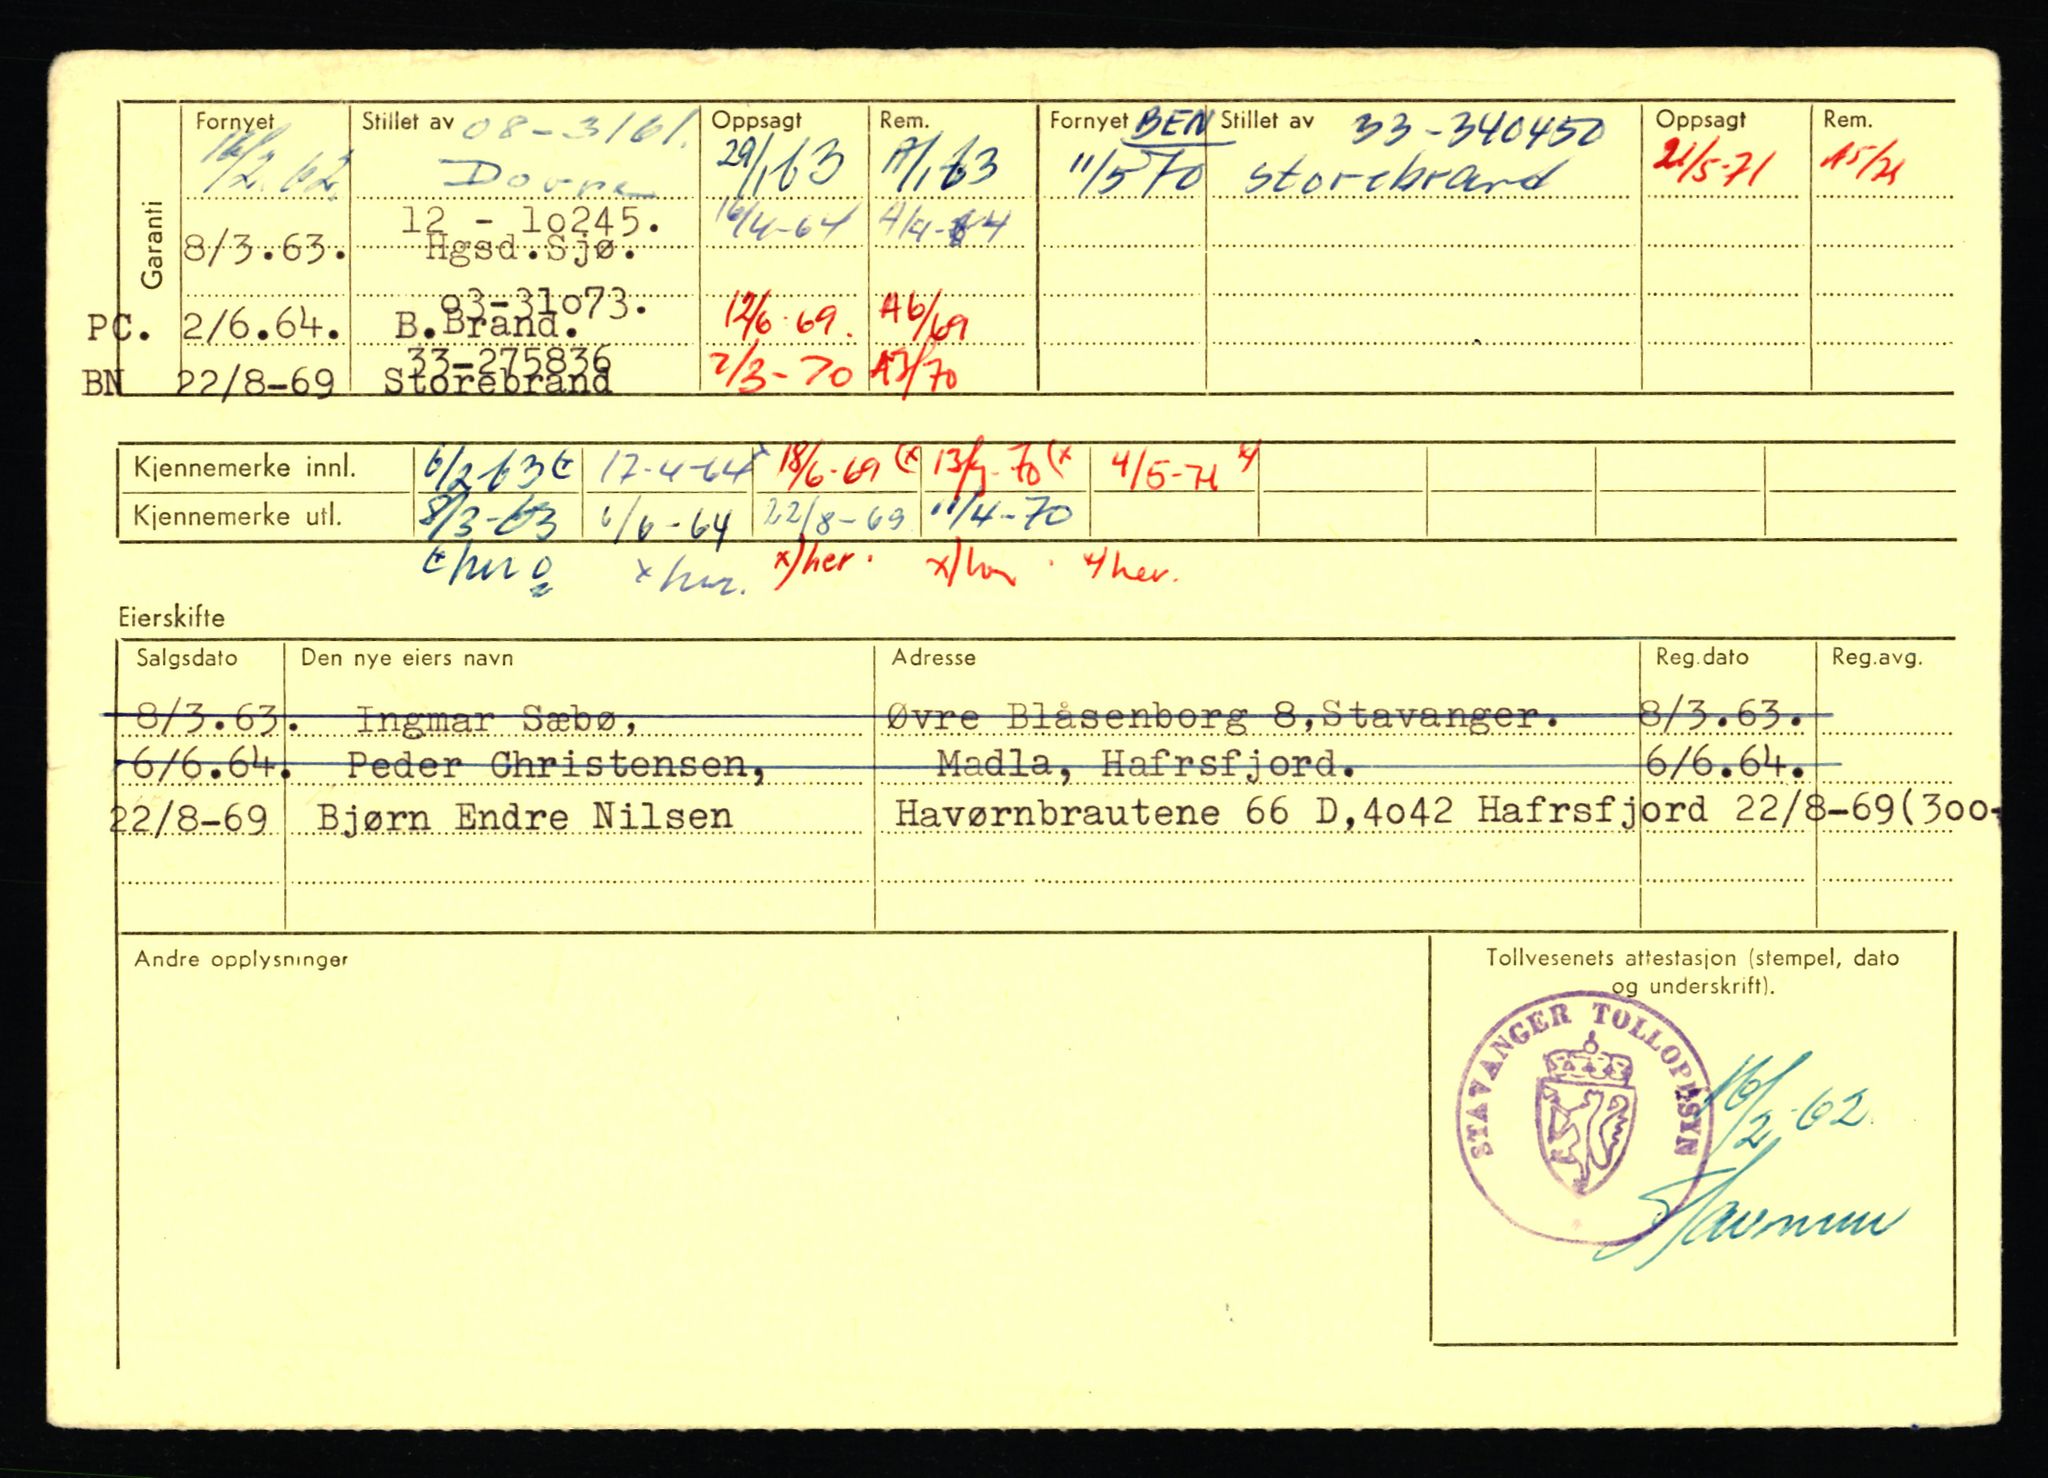 Garanti
Fornyet Stillet av 08-3161. Oppsagt Rem. Fornyet BEN Stillet av 33-340450 Oppsagt Rem.
16/2.62 Dovre 29/1 63 A/1 63 11/5 70 Storebrand 21/5-71 A5/71
12 - 1o245. 16/4-64 A/4-64
8/3.63. Hgsd.Sjø.
o3-31o73.
PC. 2/6.64. B.Brand. 12/6-69. A6/69
33-275836
BN 22/8-69 Storebrand 2/3-70 A3/70
Kjennemerke innl. 6/2-63 17-4-64 x 18/6-69 (x 13/4-70 (x 4/5-71 x/
Kjennemerke utl. 8/3-63 6/6-64 22/8-69 11/4-70
her x her. x)her. x)her. x/her.
Eierskifte
Salgsdato Den nye eiers navn Adresse Reg.dato Reg.avg.
8/3.63. Ingmar Sæbø, Øvre Blåsenborg 8,Stavanger. 8/3.63.
6/6.64. Peder Christensen, Madla, Hafrsfjord. 6/6.64.
22/8-69 Bjørn Endre Nilsen Havørnbrautene 66 D,4o42 Hafrsfjord 22/8-69(3oo-
Andre opplysninger
Tollvesenets attestasjon (stempel, dato
og underskrift).
STAVANGER TOLLOPPSYN
16/2-62.